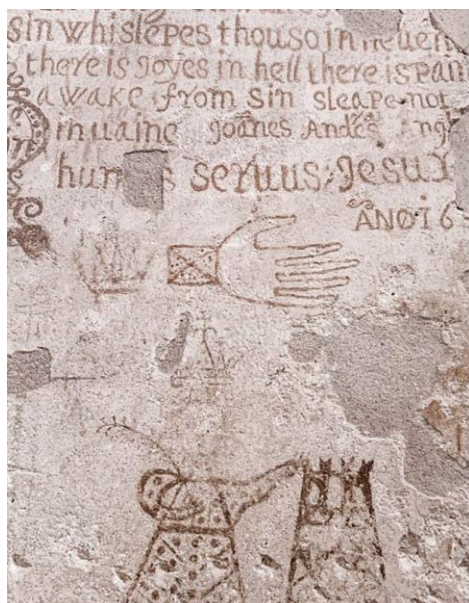 sin whi slepes thou so in heuen
there is joyes in hell there is pain
awake from sin sleape not
in uaine Joanes Andres
seruus Jesu
ANO 16